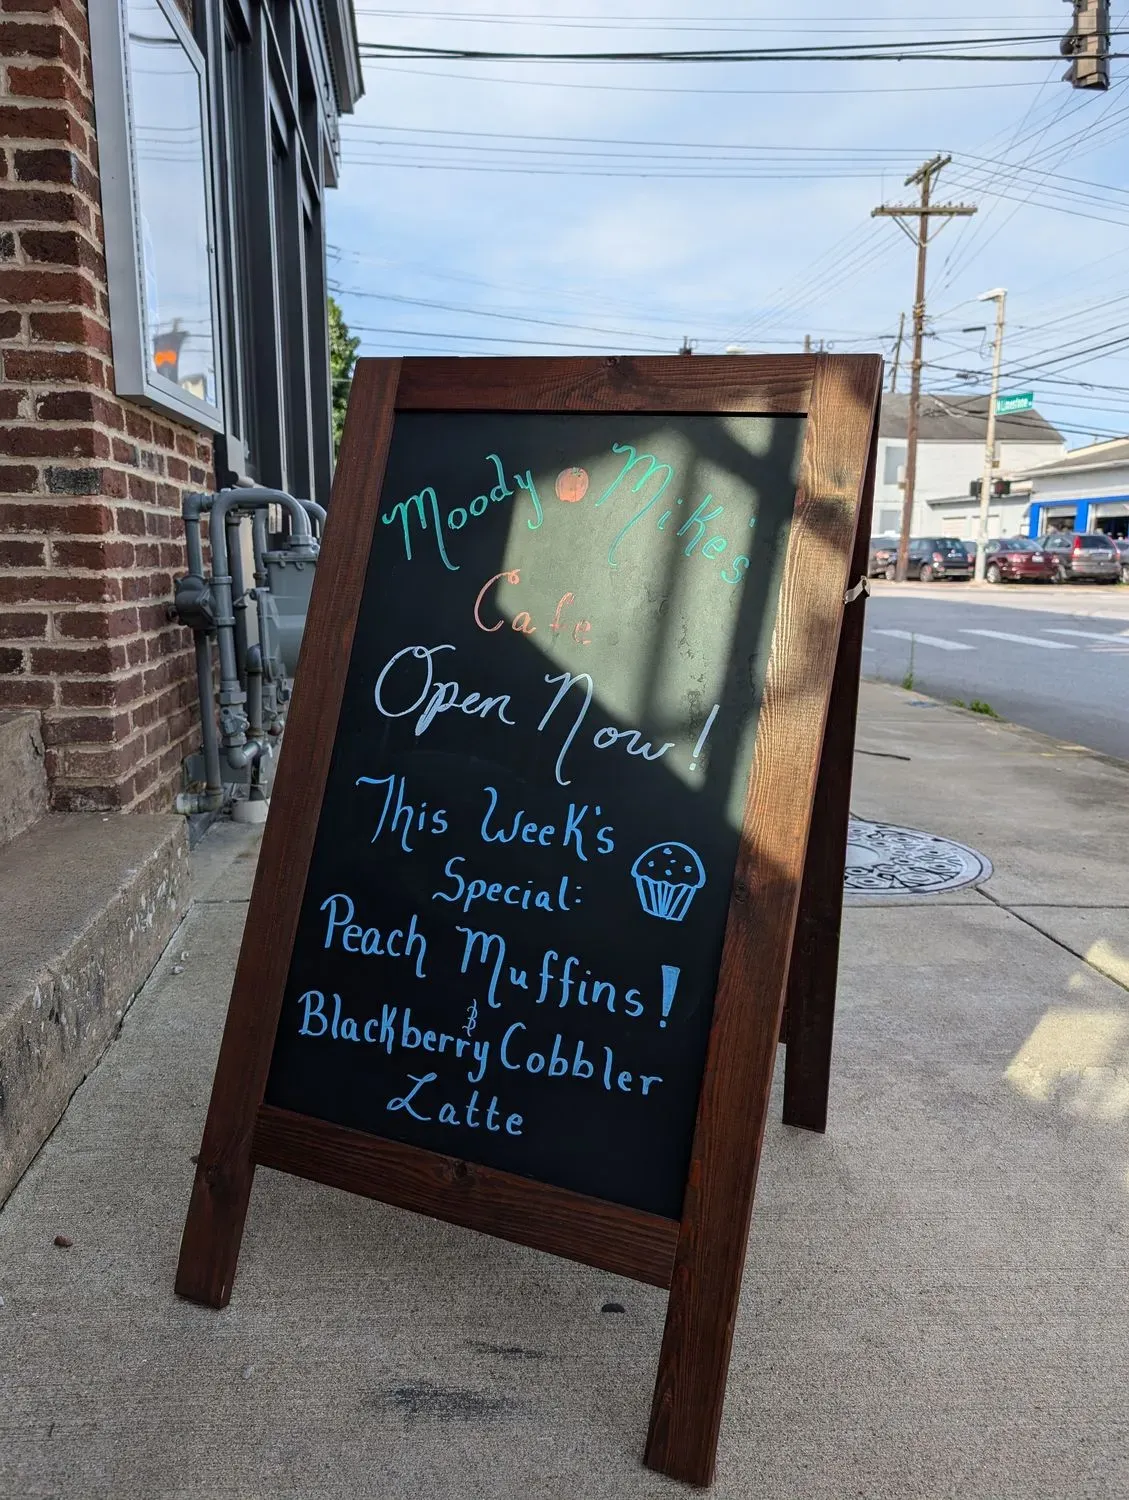 Moody Mike's
Cafe
Open Now!
This Week's
Special:
Peach Muffins!
&
Blackberry Cobbler
Latte
N Limestone